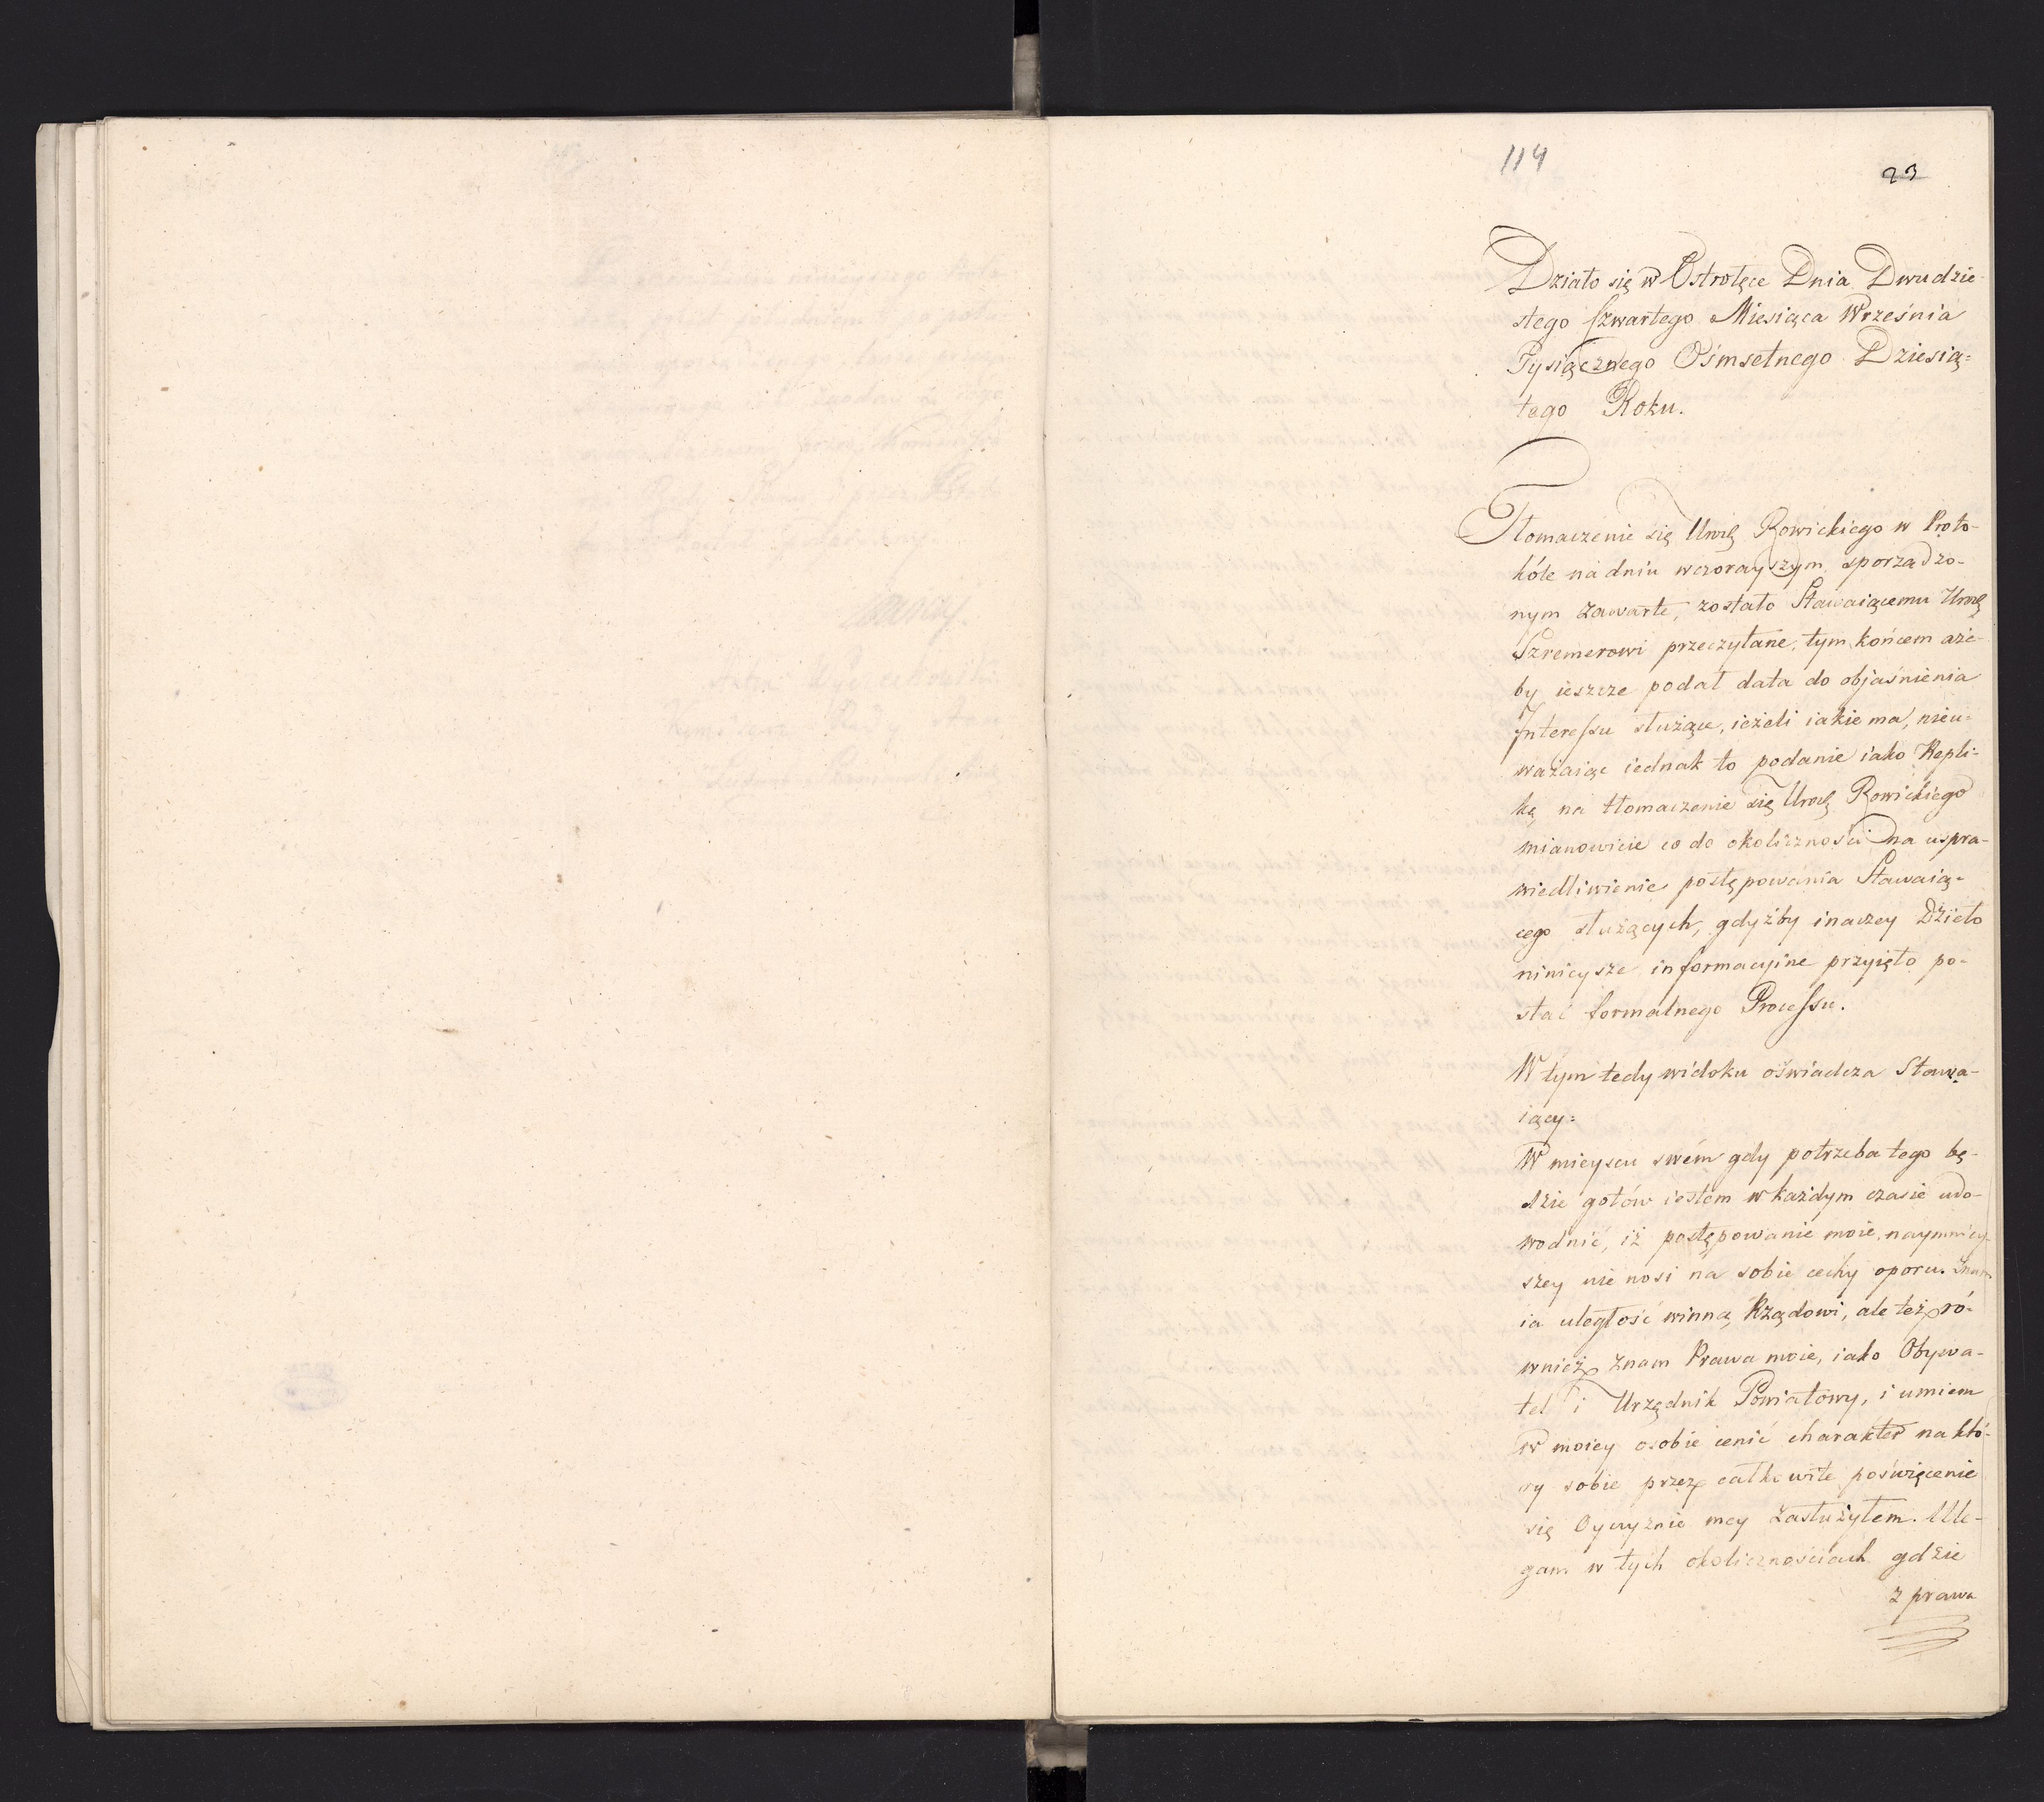 114
23
Działo się w Ostrołęce Dnia Dwudzie-
stego Czwartego Miesiąca Września
Tysiącznego Ośmsetnego Dziesią-
tego Roku.
Tłomaczenie się Urod. Rowickiego w Proto-
kóle na dniu wczorayszym sporządzo-
nym zawarte, zostało Stawaiącemu Urod.
Szremerowi przeczytane, tym końcem aże-
by ieszcze podał data do objaśnienia
Interessu służące, ieżeli iakie ma, nieu-
ważaiąc iednak to podanie iako Repli-
kę na tłomaczenie się Urod. Rowickiego
mianowicie co do okoliczności na uspra-
wiedliwienie postępowania Stawaią-
cego służących, gdyżby inaczey Dzieło
ninieysze informacyine przyięło po-
stać formalnego Processu.
W tym tedy widoku oświadcza Stawa-
iący:
W mieyscu swém gdy potrzeba tego bę-
dzie gotów iestem w każdym czasie udo-
wodnić, iż postępowanie moie naymniey-
szey nie nosi na sobie cechy oporu. Znam
ia uległość winną Rządowi, ale też ró-
wnież znam Prawa moie, iako Obywa-
tel i Urzędnik Powiatowy, i umiem
w moiey osobie cenić charakter na któ-
ry sobie przez całkowite poświęcenie
się Oyczyznie mey zasłużyłem. Ule-
gam w tych okolicznościach gdzie
z prawa